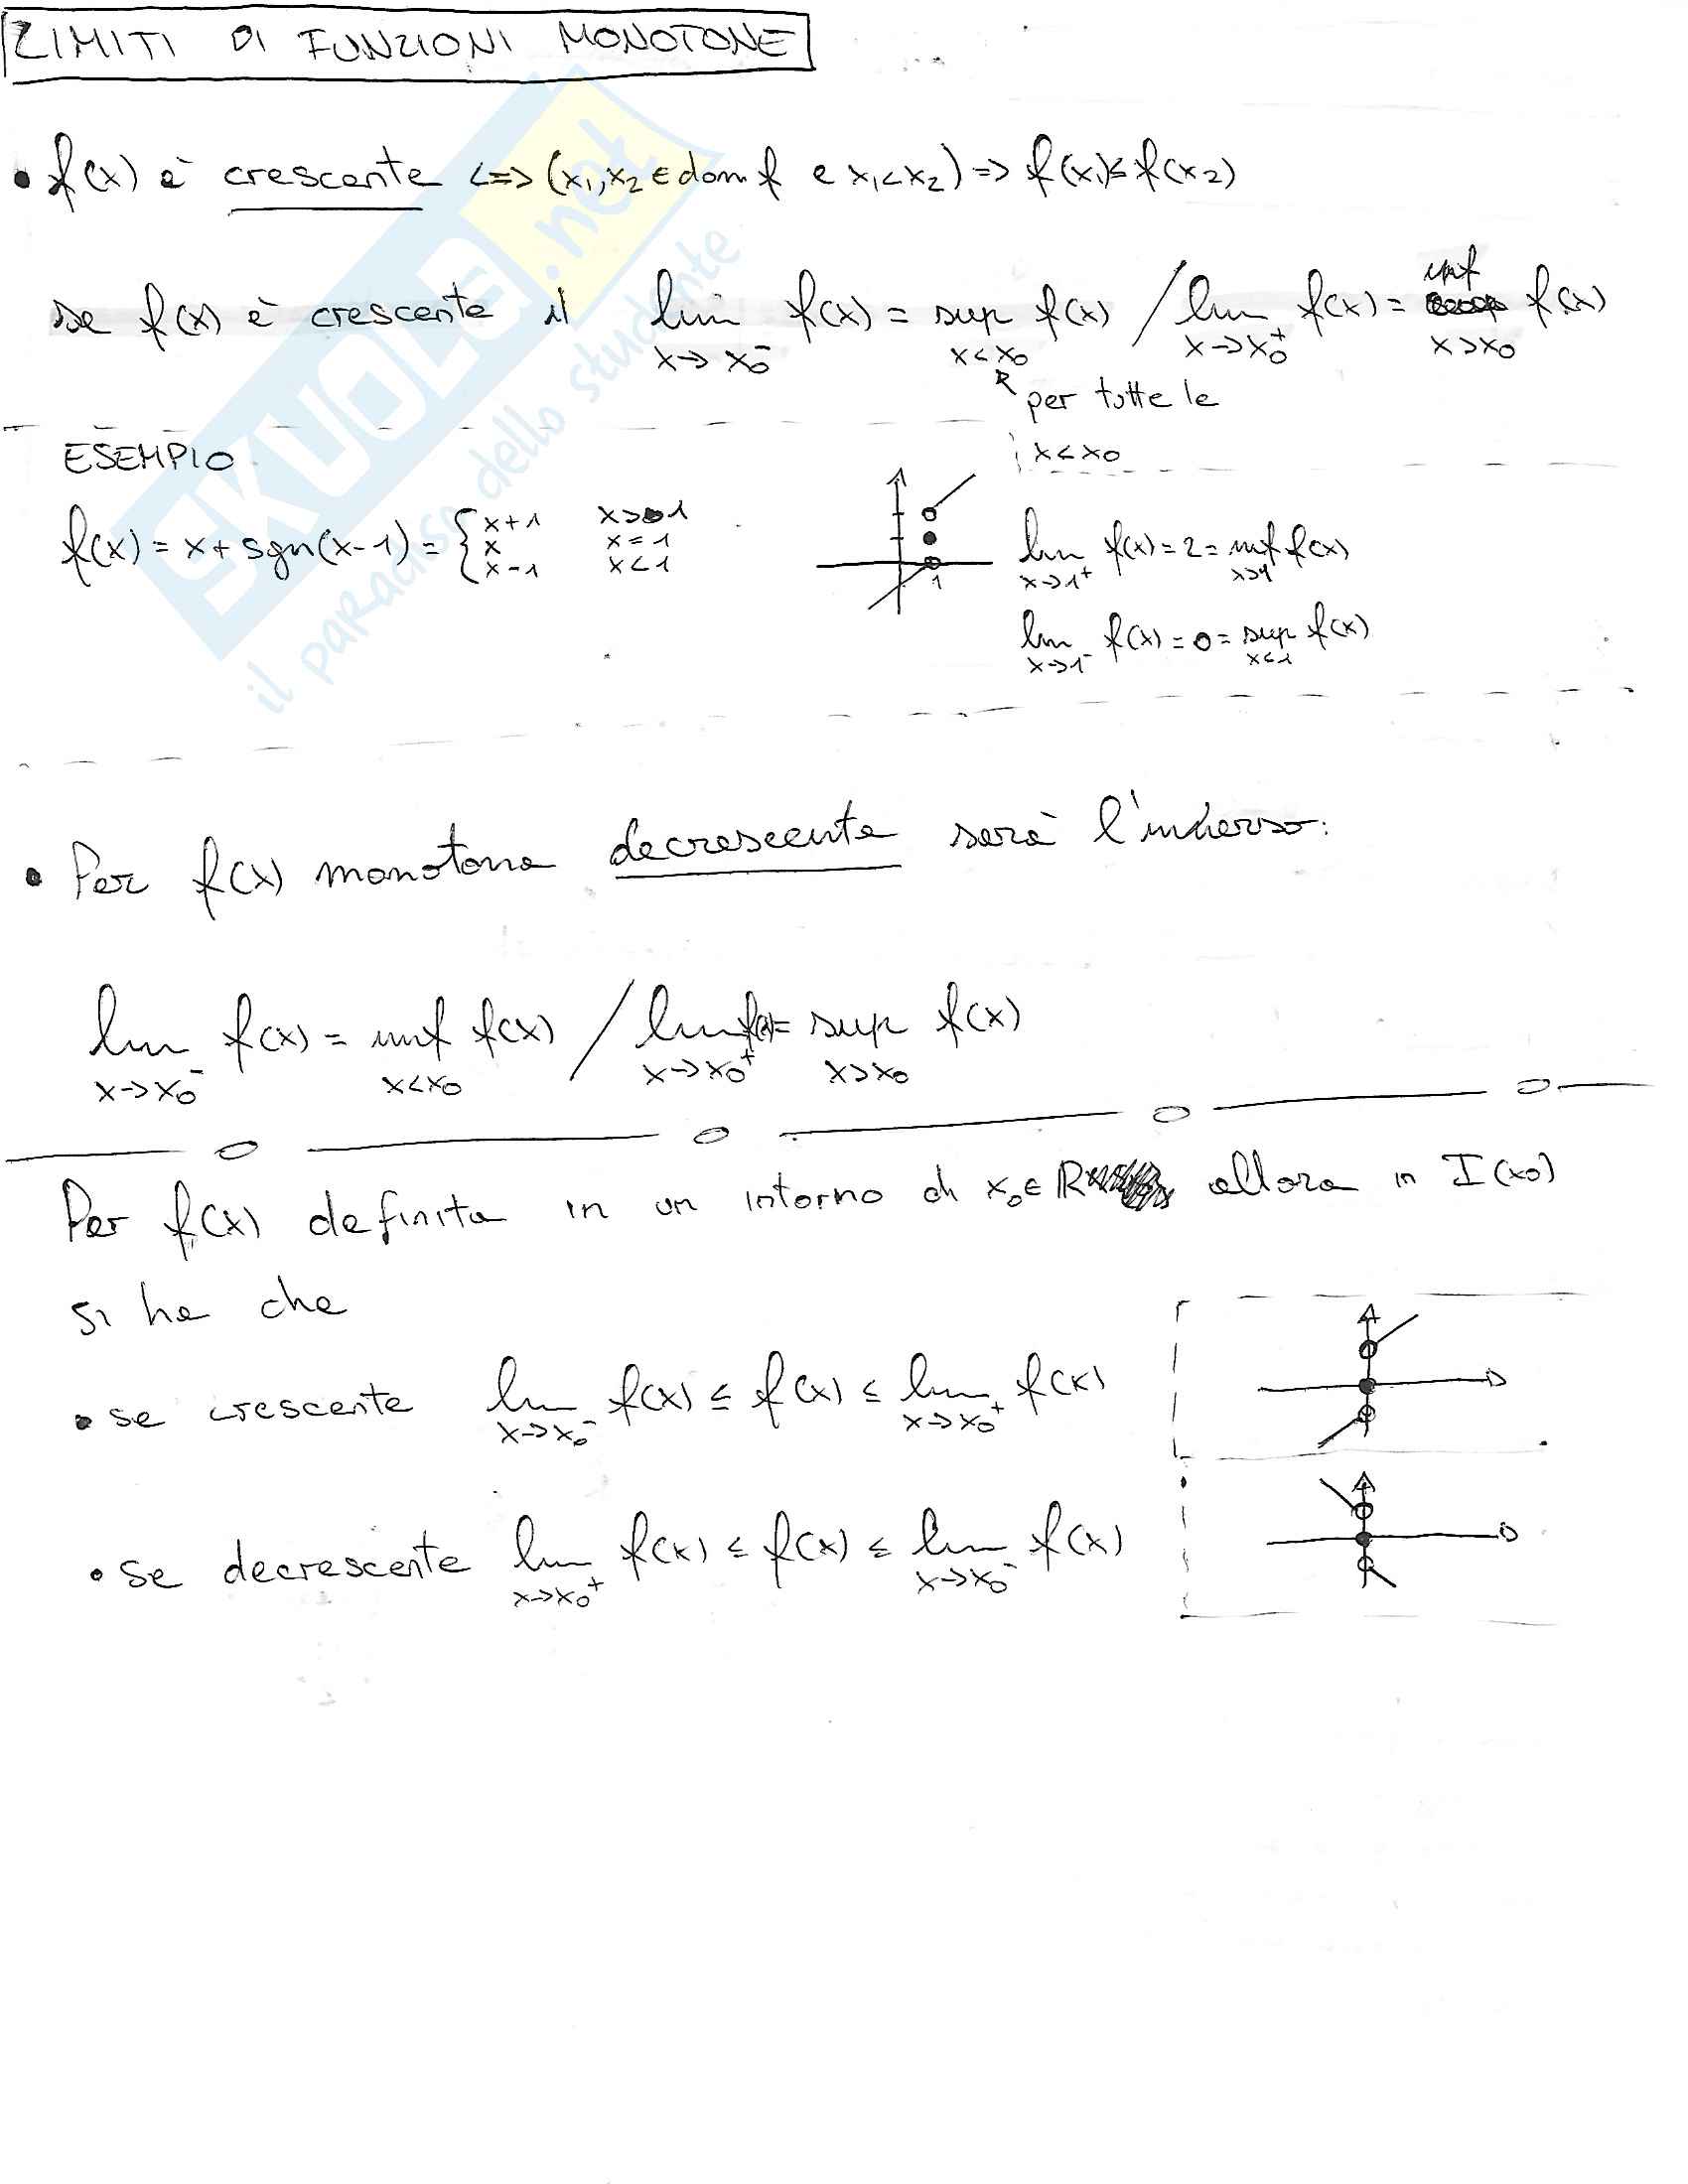 LIMITI DI FUNZIONI MONOTONE
• f(x) è crescente <=> (x₁,x₂ ∈ dom f e x₁<x₂) => f(x₁)≤f(x₂)
se f(x) è crescente il lim x→x₀⁻ f(x) = sup x<x₀ f(x) / lim x→x₀⁺ f(x) = inf x>x₀ f(x)
per tutte le
x<x₀
ESEMPIO
f(x) = x + sgn(x-1) = { x+1 x>1
x x=1
x-1 x<1
1
lim x→1⁺ f(x) = 2 = inf x>1 f(x)
lim x→1⁻ f(x) = 0 = sup x<1 f(x)
• Per f(x) monotona decrescente sarà l'inverso:
lim x→x₀⁻ f(x) = inf x<x₀ f(x) / lim x→x₀⁺ f(x) = sup x>x₀ f(x)
Per f(x) definita in un intorno di x₀∈R allora in I(x₀)
si ha che
• se crescente lim x→x₀⁻ f(x) ≤ f(x) ≤ lim x→x₀⁺ f(x)
• se decrescente lim x→x₀⁺ f(x) ≤ f(x) ≤ lim x→x₀⁻ f(x)
SKUOLA.net
il paradiso dello studente